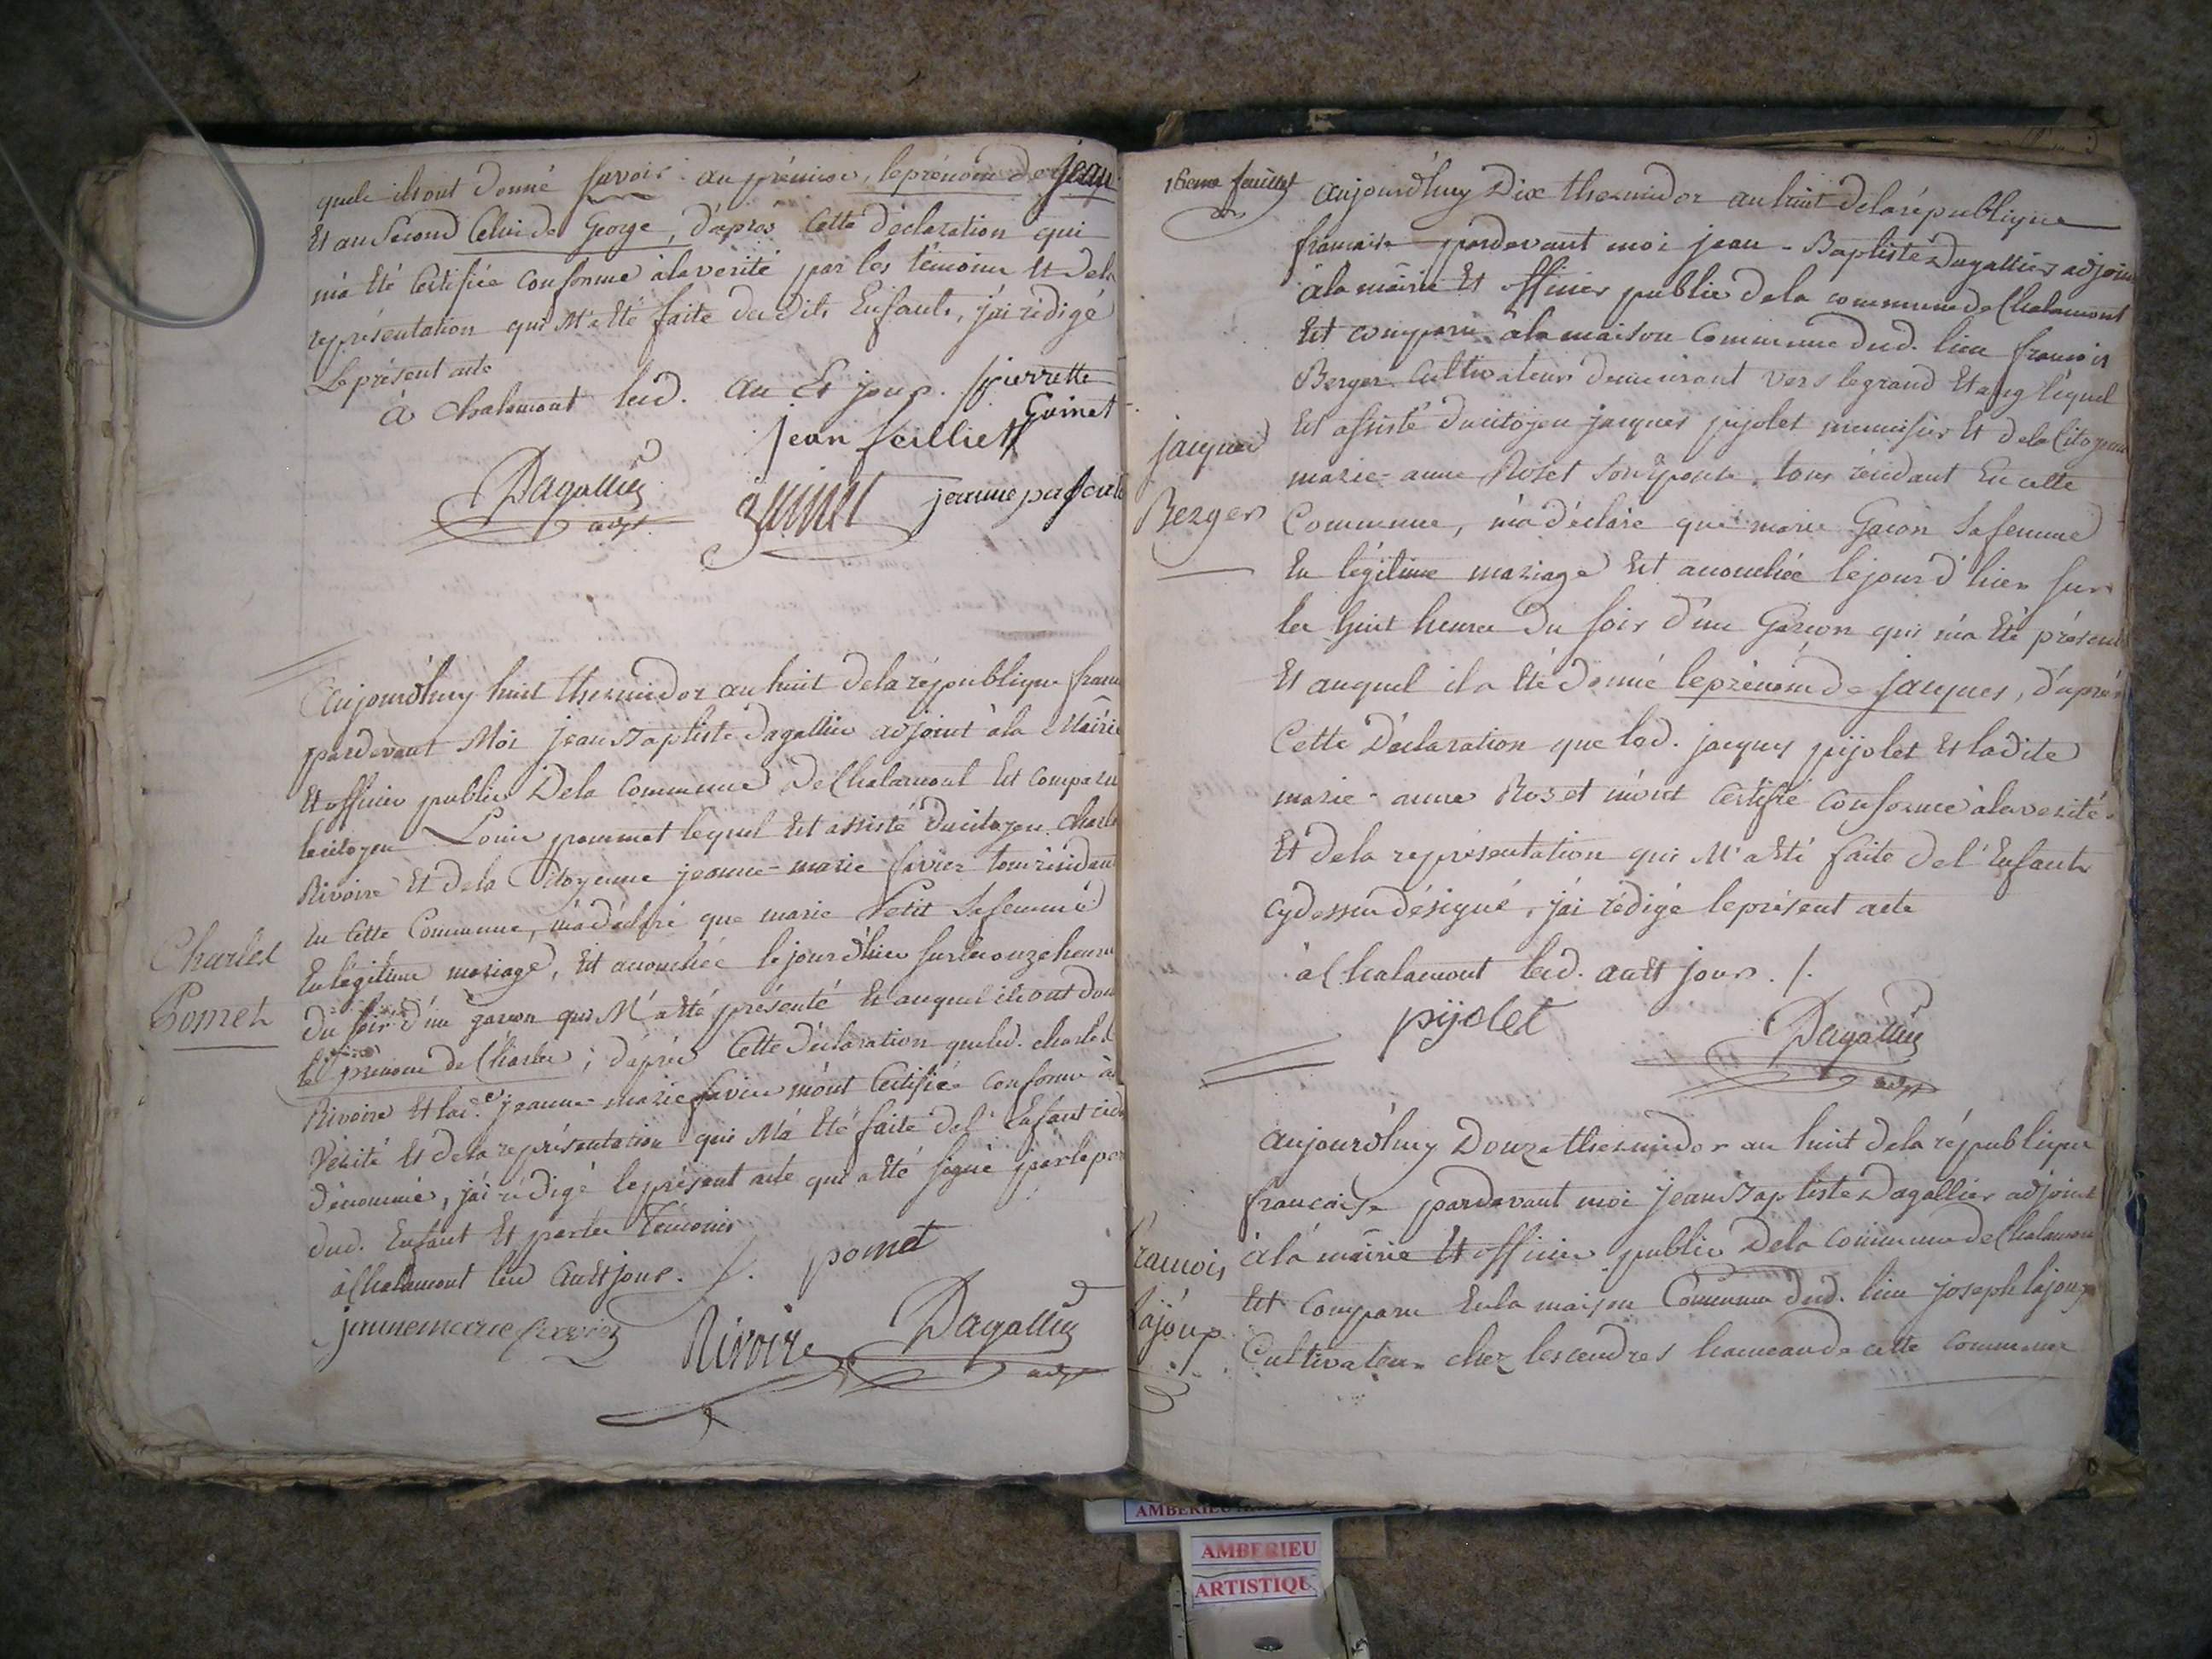 quels ils ont donné savoir au premier, le prénom de jean
Et au Second Celui de George, d'apres Cette déclaration qui
m'a Eté Certifiée Conforme à la verité par les témoins Et de la
représentation qui M'a Eté faite desdits Enfants, j'ai rédigé
Le présent acte
à chalamont lesd. an Et jour. pierrette
Guinet
jean feilliet
Dagallier
adjt
guinet
jeanne
aujourd'huy huit thermidor an huit de la république
pardevant Moi jean Baptiste dagallier adjoint à la Mairie
Et officier public De la Commune De Chalamont Est Comparu
le citoyen Louis pommet lequel Est assisté du citoyen Charles
Rivoire Et de la Citoyenne jeanne-marie favier tous résidant
En Cette Commune, m'a déclaré que marie Petit Sa femme
En légitime mariage, Est accouchée le jour d'hier sur les onze heures
Du soir d'un garcon qui M'a Eté présenté Et auquel ils ont
le prénom de Charles, d'après Cette Déclaration que led. charles
Rivoire Et lad.e jeanne marie favier m'ont Certifiée Conforme à
Vérité Et de la représentation qui M'a Eté faite de l'Enfant
dénommé, j'ai rédigé le présent acte qui a Eté signé par le
dud. Enfant Et par les Témoins
à Chalamont lesd an Et jour. /. pomet
jannemarie favier
Rivoire
Dagallier
adjt
Charles
Pomet
16eme feuillet
aujourd'huy Dix thermidor an huit de la république
francaise pardevant moi jean-Baptiste Dagallier adjoint
à la mairie Et officier public de la commune de Chalamont
Est comparu à la maison Commune dud. lieu francois
Berger Cultivateur demeurant vers le grand Etang lequel
Est assisté du citoyen jacques pijolet menuisier Et de la Citoyenne
marie-anne Roset son Epouse, tous résidant En cette
Commune, m'a déclaré que marie Gacon Sa femme
En légitime mariage Est accouchée le jour d'hier sur
les huit heures du soir d'un Garcon qui m'a Eté présenté
Et auquel il a Eté donné le prénom de jacques, d'après
Cette Déclaration que led. jacques pijolet Et ladite
marie-anne Roset m'ont Certifié Conforme à la verité
Et de la représentation qui M'a Eté faite de l'Enfant
cy dessus désigné, j'ai rédigé le présent acte
à Chalamont lesd. an Et jour. /.
pijolet
Dagallier
adjt
jacques
Berger
aujourd'huy Douze thermidor an huit de la république
francaise pardevant moi jean Baptiste Dagallier adjoint
à la mairie Et officier public De la commune de Chalamont
Est Comparu En la maison Commune dud. lieu joseph lajoux
Cultivateur chez les cendres hameau de cette commune
francois
lajoux
AMBERIEU
AMBERIEU
ARTISTIQU